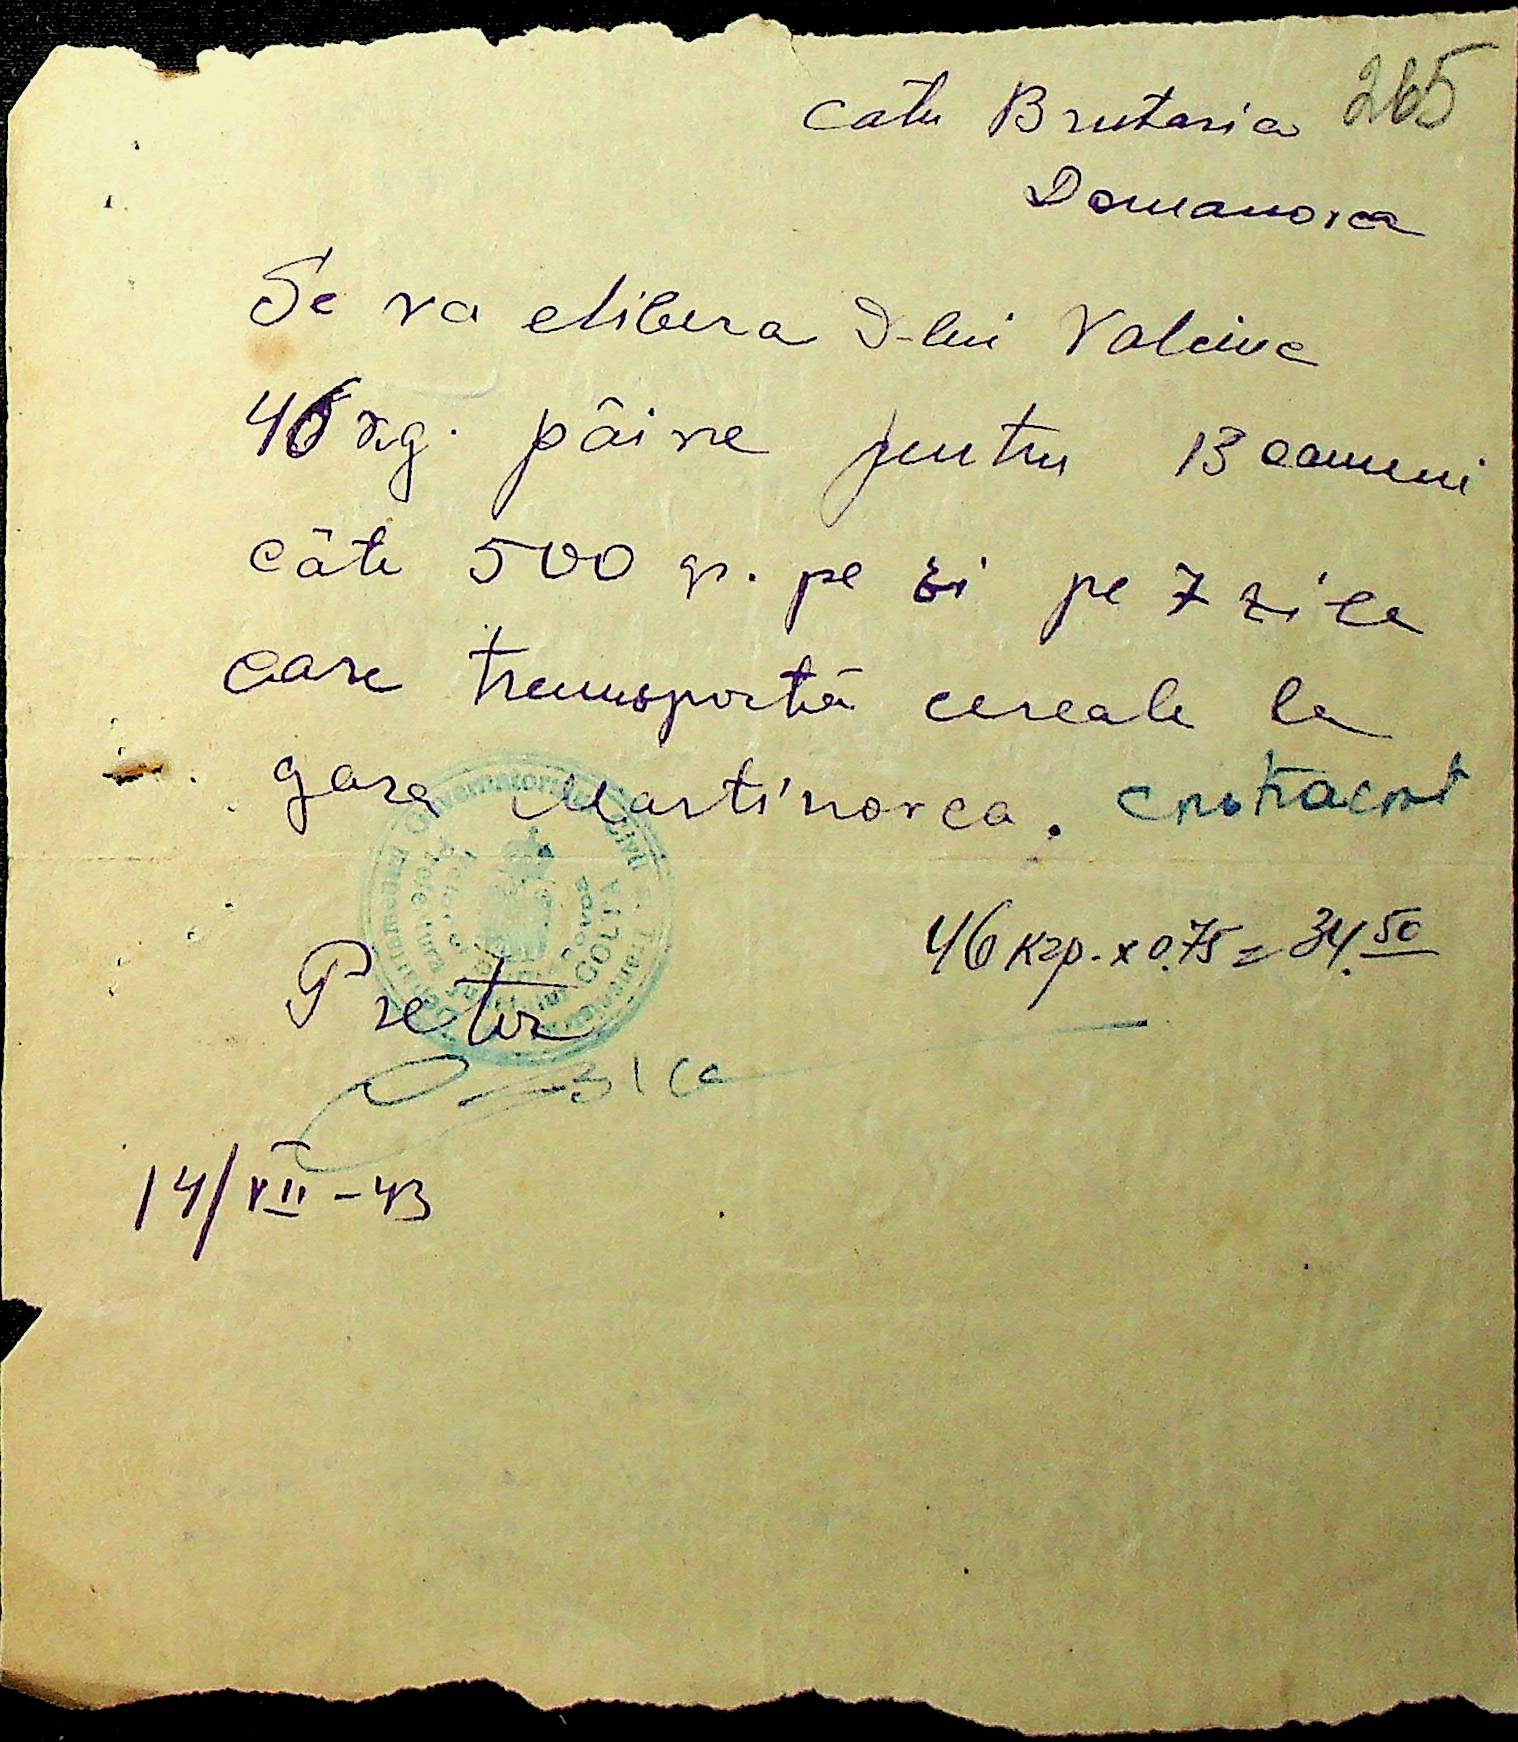 265
Catre Brutaria
Domanovca
Se va elibera D-lui
46 kg. pâine pentru 13 oameni
câte 500 gr. pe zi pe 7 zile
care transportă cereale la
gara Martinovca. contracost
46 кгр. x 0.75 = 34.50
Pretor
14/VII-43
Guvernatorul Civil al Transnistriei
GOLTA